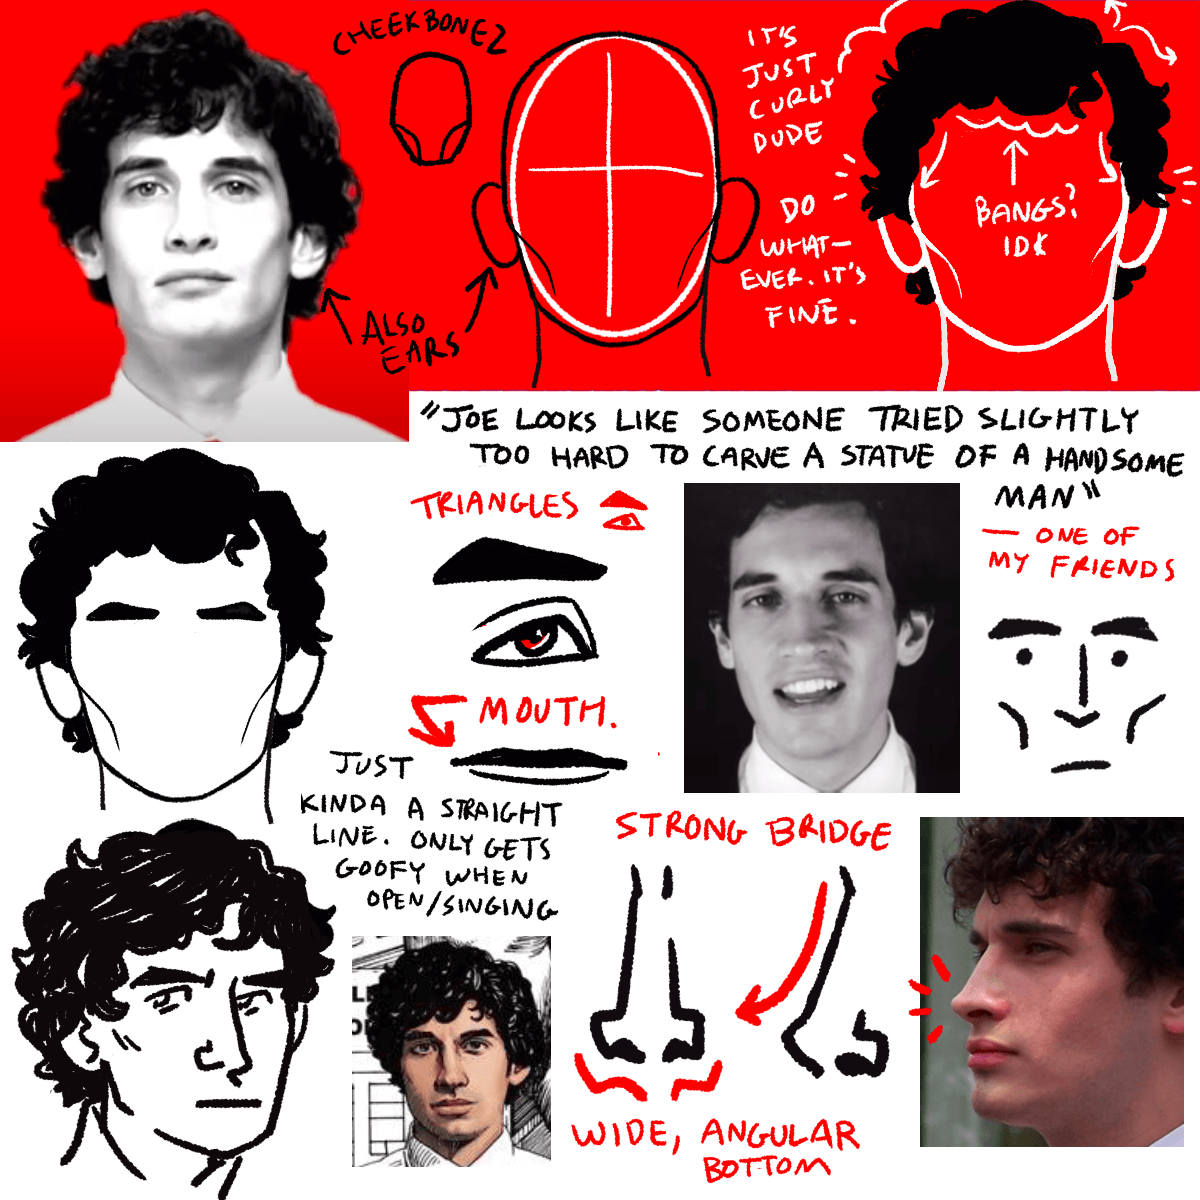 CHEEKBONEZ
ALSO
EARS
IT'S
JUST
CURLY
DUDE
DO
WHAT-
EVER. IT'S
FINE.
BANGS?
IDK
"JOE LOOKS LIKE SOMEONE TRIED SLIGHTLY
TOO HARD TO CARVE A STATUE OF A HANDSOME
MAN"
— ONE OF
MY FRIENDS
TRIANGLES
MOUTH.
JUST
KINDA A STRAIGHT
LINE. ONLY GETS
GOOFY WHEN
OPEN/SINGING
STRONG BRIDGE
WIDE, ANGULAR
BOTTOM